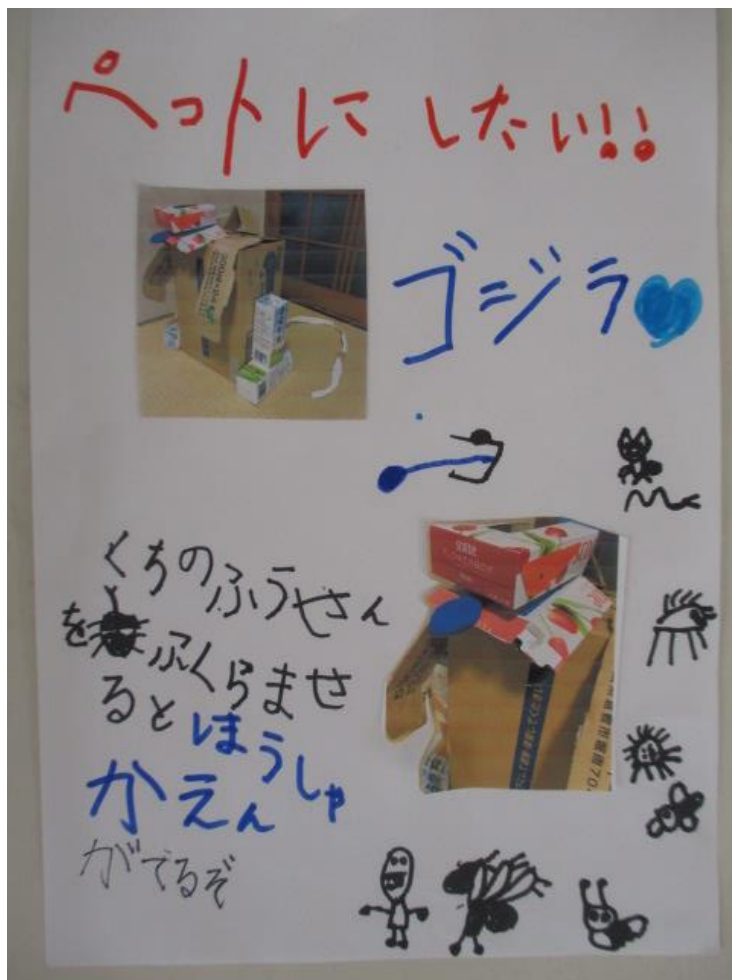 ペットにしたい!!
ゴジラ
くちのふうせん
をふくらませ
るとほうしゃ
かえん
がでるぞ